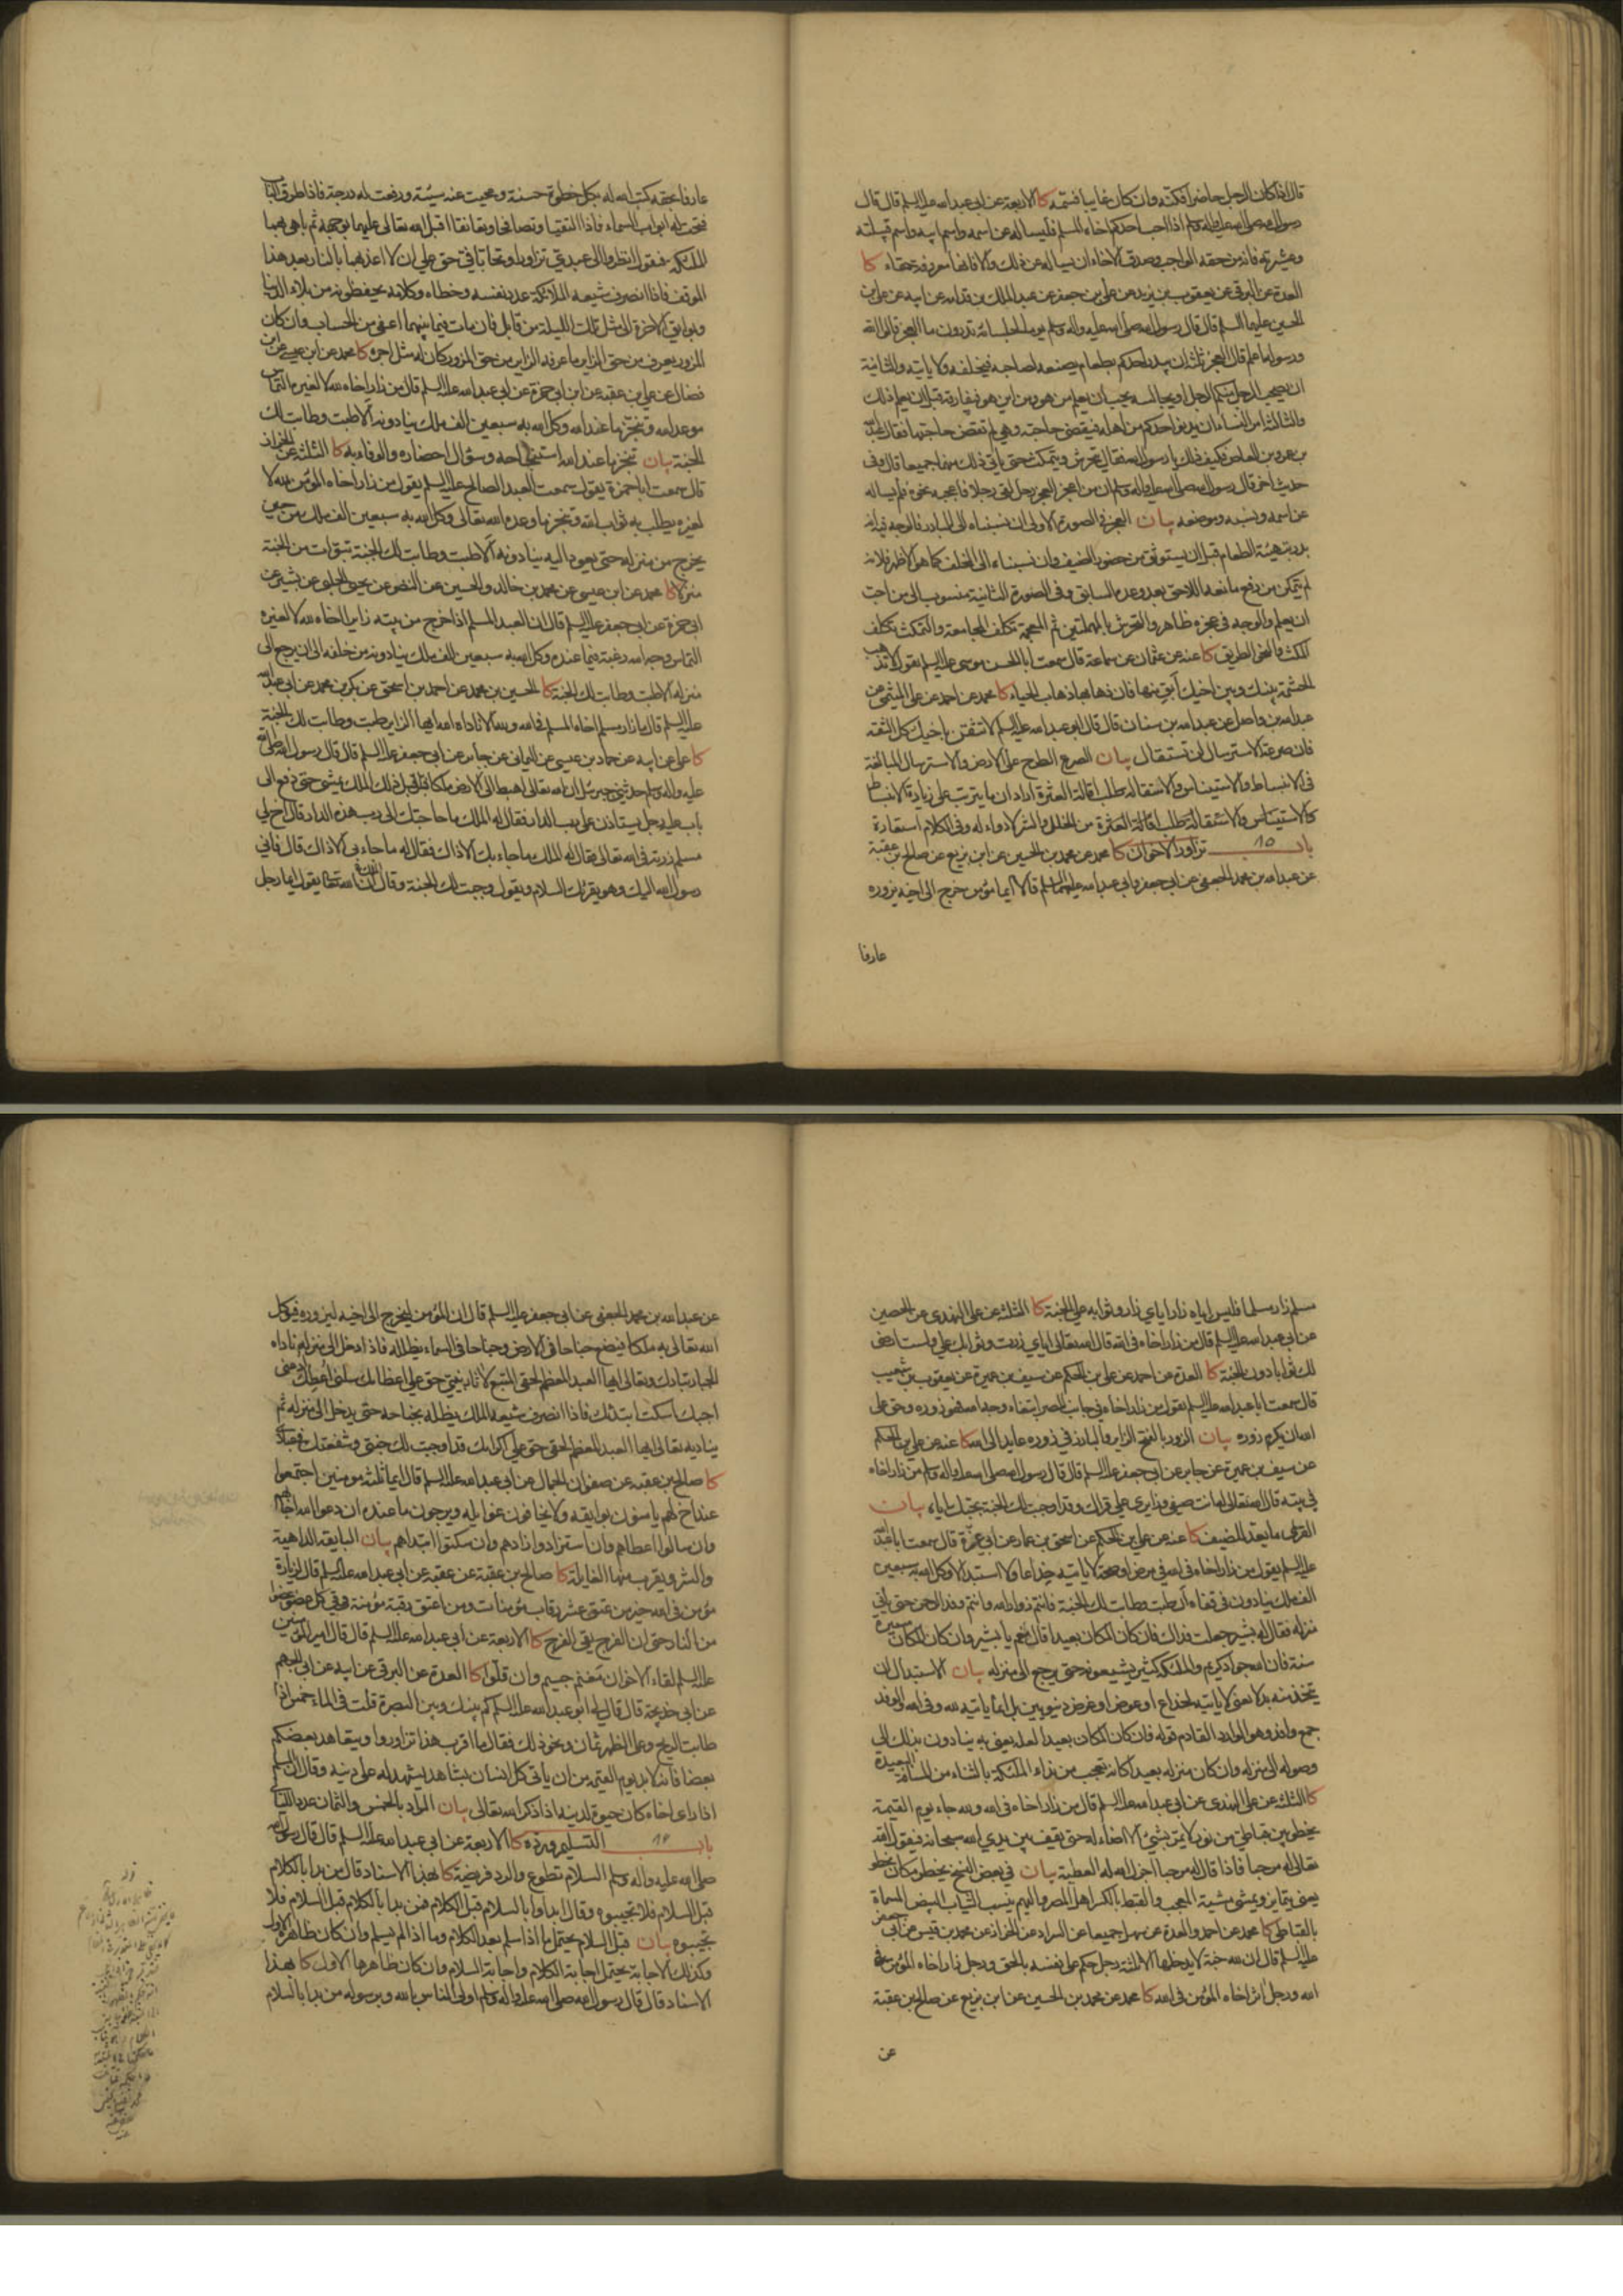 قال اذا كان الرجل حاضرا فكنه وان كان غايبا فسمه كا الاربعة عن ابي عبد الله عليه السلم قال قال
رسول الله صلى الله عليه واله وسلم اذا احب احدكم اخاه المسلم فليساله عن اسمه واسم ابيه واسم قبيلته
وعشيرته فانه من حقه الواجب وصدق الاخاء ان يساله عن ذلك والا فانها معرفة حمقاء كا
العدة عن البرقي عن يعقوب بن يزيد عن علي بن جعفر عن عبد الملك بن قدامه عن ابيه عن علي بن
الحسين عليهما السلم قال قال رسول الله صلى الله عليه واله وسلم يوما لجلسائه تدرون ما العجز قالوا الله
ورسوله اعلم قال العجز ثلثة ان يبدر احدكم بطعام يصنعه لصاحبه فيخلفه ولا ياتيه والثانية
ان يصحب الرجل منكم الرجل او يجالسه يحب ان يعلم من هو ومن اين هو فيفارقه قبل ان يعلم ذلك
والثالثة امر النساء ان يدنو احدكم من اهله فيقضي حاجته وهي لم تقض حاجتها فقال عبد الله
بن عمرو بن العاص فكيف ذلك يا رسول الله فقال يتحرش ويتمكث حتى ياتي ذلك منهما جميعا قال وفي
حديث اخر قال رسول الله صلى الله عليه واله وسلم ان من اعجز العجز رجل لقي رجلا فاعجبه نحوه فلم يساله
عن اسمه ونسبه وموضعه بيان العجز في الصورة الاولى ان نسبناه الى المبادر فالوجه فيه انه
بدرت هيئة الطعام قبل ان يستوثق من حضور الضيف وان نسبناه الى المخلف كما هو الاظهر فلانه
لم يتمكن من دفع ما منعه اللاحق بعد وعده السابق وفي الصورة الثانية منسوب الى من احب
ان يعلم والوجه في عجزه ظاهر والتحرش بالمهملتين ثم المعجمة تكلف المجامعة والتمكث تكلف
المكث والتمح الطريق كا عنه عن عثمان عن سماعة قال سمعت ابا الحسن موسى عليه السلم يقول لا تذهب
الحشمة بينك وبين اخيك ابق منها فان ذهابها ذهاب الحياء كا محمد عن احمد عن علي الميثمي عن
عبد الله بن واصل عن عبد الله بن سنان قال قال ابو عبد الله عليه السلم لا تثقن باخيك كل الثقة
فان صرعة الاسترسال لن تستقال بيان الصرع الطرح على الارض والاسترسال المبالغة
في الانبساط والاستيناس والاستقالة طلب اقالة العثرة اراد ان ما يترتب على زيادة الانبساط
والاستيناس من الخلل والشر لا دواء له وفي الكلام استعارة
باب ١٥ تزاور الاخوان كا محمد عن محمد بن الحسين عن ابن بزيع عن صالح بن عقبة
عن عبد الله بن محمد الجعفي عن ابي جعفر وابي عبد الله عليهما السلم قالا ايما مؤمن خرج الى اخيه يزوره
عارفا
عارفا بحقه كتب الله له بكل خطوة حسنة ومحيت عنه سيئة ورفعت له درجة فاذا طرق الباب
فتحت له ابواب السماء فاذا التقيا وتصافحا وتعانقا اقبل الله تعالى عليهما بوجهه ثم باهى بهما
الملئكة فيقول انظروا الى عبدي تزاورا وتحابا في حق علي ان لا اعذبهما بالنار بعد هذا
الموقف فاذا انصرف شيعه الملائكة عدد نفسه وخطاه وكلامه يحفظونه من بلاء الدنيا
وبوايق الاخرة الى مثل تلك الليلة من قابل فان مات فيما بينهما اعفي من الحساب وان كان
المزور يعرف من حق الزاير ما عرفه الزاير من حق المزور كان له مثل اجره كا محمد عن ابن عيسى عن ابن
فضال عن علي بن عقبة عن ابي حمزة عن ابي عبد الله عليه السلم قال من زار اخاه لله لا لغيره التماس
موعد الله وتنجز ما عند الله وكل الله به سبعين الف ملك ينادونه الا طبت وطابت لك
الجنة بيان تنجز ما عند الله استنجاحه وسؤال احضاره والوفاء به كا الثلثة عن الخراز
قال سمعت ابا حمزة يقول سمعت العبد الصالح عليه السلم يقول من زار اخاه المؤمن لله لا
لغيره يطلب به ثواب الله وتنجز ما وعده الله تعالى وكل الله به سبعين الف ملك من حين
يخرج من منزله حتى يعود اليه ينادونه الا طبت وطابت لك الجنة تبوات من الجنة
منزلا كا محمد عن ابن عيسى عن محمد بن خالد والحسين عن النضر عن يحيى الحلبي عن بشير عن
ابي حمزة عن ابي جعفر عليه السلم قال ان العبد المسلم اذا خرج من بيته زايرا اخاه لله لا لغيره
التماس وجه الله رغبة فيما عنده وكل الله به سبعين الف ملك ينادونه من خلفه الى ان يرجع الى
منزله الا طبت وطابت لك الجنة كا الحسين بن محمد عن احمد بن اسحق عن بكر بن محمد عن ابي عبد الله
عليه السلم قال ما زار مسلم اخاه المسلم في الله ولله الا ناداه الله ايها الزاير طبت وطابت لك الجنة
كا علي عن ابيه عن حماد بن عيسى عن اليماني عن جابر عن ابي جعفر عليه السلم قال قال رسول الله صلى الله
عليه واله وسلم حدثني جبرئيل ان الله تعالى اهبط الى الارض ملكا فاقبل ذلك الملك يمشي حتى دفع الى
باب عليه رجل يستاذن على رب الدار فقال له الملك ما حاجتك الى رب هذه الدار قال اخ لي
مسلم زرته في الله تعالى فقال له الملك ما جاء بك الا ذاك فقال له ما جاء بي الا ذاك قال فاني
رسول الله اليك وهو يقرئك السلام ويقول وجبت لك الجنة وقال ان الله تعالى يقول ايما رجل
مسلم زار مسلما فليس اياه زار اياي زار وثوابه علي الجنة كا الثلثة عن علي النهدي عن الحصين
عن ابي عبد الله عليه السلم قال من زار اخاه في الله قال الله تعالى اياي زرت وثوابك علي ولست ارضى
لك ثوابا دون الجنة كا العدة عن احمد عن علي بن الحكم عن سيف بن عميرة عن يعقوب بن شعيب
قال سمعت ابا عبد الله عليه السلم يقول من زار اخاه في جانب المصر ابتغاء وجه الله فهو زوره وحق على
الله ان يكرم زوره بيان الزور بالفتح الزاير والبارز في زوره عايد الى الله كا عنه عن علي بن الحكم
عن سيف بن عميرة عن جابر عن ابي جعفر عليه السلم قال قال رسول الله صلى الله عليه واله وسلم من زار اخاه
في بيته قال الله تعالى له انت ضيفي وزايري علي قراك وقد اوجبت لك الجنة بحبك اياه بيان
القرى ما يعد للضيف كا عنه عن علي بن الحكم عن اسحق بن عمار عن ابي غرة قال سمعت ابا عبد الله
عليه السلم يقول من زار اخاه في الله في مرض او صحة لا ياتيه خداعا ولا استبدالا وكل الله به سبعين
الف ملك ينادون في قفاه ان طبت وطابت لك الجنة فانتم زوار الله وانتم وفد الرحمن حتى ياتي
منزله فقال له بشير جعلت فداك فان كان المكان بعيدا قال نعم يا بشير وان كان المكان مسيرة
سنة فان الله جواد كريم والملئكة كثير يشيعونه حتى يرجع الى منزله بيان الاستبدال ان
يتخذ منه بدلا يعني لا ياتيه لخداع او عوض او غرض دنيويين بل انما ياتيه لله وفي الله الوفد
جمع وافد وهو الوارد القادم قوله فان كان المكان بعيدا لعله يعني به ينادون بذلك الى
وصوله الى منزله وان كان منزله بعيدا كانه تعجب من نداء الملئكة بالثناء من المسافة البعيدة
كا الثلثة عن علي النهدي عن ابي عبد الله عليه السلم قال من زار اخاه في الله ولله جاء يوم القيمة
يخطر بين قباطي من نور لا يمر بشيء الا اضاء له حتى يقف بين يدي الله سبحانه فيقول الله
تعالى له مرحبا فاذا قال له مرحبا اجزل الله له العطية بيان في بعض النسخ يخطو مكان يخطر
يعني يتمايز ويمشي مشية المعجب والقبط بالكسر اهل المصر واليهم ينسب الثياب البيض المسماة
بالقباطي كا محمد عن احمد والعدة عن سهل جميعا عن السراد عن الخزاز عن محمد بن قيس عن ابي جعفر
عليه السلم قال ان لله جنة لا يدخلها الا ثلثة رجل حكم على نفسه بالحق ورجل زار اخاه المؤمن في
الله ورجل اثر اخاه المؤمن في الله كا محمد عن محمد بن الحسين عن ابن بزيع عن صالح بن عقبة
عن
عن عبد الله بن محمد الجعفي عن ابي جعفر عليه السلم قال ان المؤمن ليخرج الى اخيه ليزوره فيوكل
الله تعالى به ملكا فيضع جناحا في الارض وجناحا في السماء يظله فاذا دخل الى منزله ناداه
الجبار تبارك وتعالى ايها العبد المعظم لحقي المتبع لاثار نبيي حق علي اعظامك سلني اعطك ادعني
اجبك اسكت ابتدئك فاذا انصرف شيعه الملك يظله بجناحه حتى يدخل الى منزله ثم
يناديه تعالى ايها العبد المعظم لحقي حق علي اكرامك قد اوجبت لك جنتي وشفعتك في عبادي
كا صالح بن عقبه عن صفوان الجمال عن ابي عبد الله عليه السلم قال ايما ثلثة مومنين اجتمعوا
عند اخ لهم يامنون بوايقه ولا يخافون غوايله ويرجون ما عنده ان دعوا الله اجابهم
وان سالوا اعطاهم وان استزادوا زادهم وان سكتوا ابتداهم بيان البايقة الداهية
والشر ويقرب منها الغايلة كا صالح بن عقبة عن عقبة عن ابي عبد الله عليه السلم قال لزيارة
مؤمن في الله خير من عتق عشر رقاب مؤمنات ومن اعتق رقبة مؤمنة وقى كل عضو عضوا
من النار حتى ان الفرج يقي الفرج كا الاربعة عن ابي عبد الله عليه السلم قال قال امير المؤمنين
عليه السلم لقاء الاخوان مغنم جسيم وان قلوا كا العدة عن البرقي عن ابيه عن ابي الجهم
عن ابي خديجة قال قال لي ابو عبد الله عليه السلم كم بينك وبين البصرة قلت في الماء خمس اذا
طابت الريح وعلى الظهر ثمان ونحو ذلك فقال ما اقرب هذا تزاوروا ويتعاهد بعضكم
بعضا فانه لا بد يوم القيمة من ان ياتي كل انسان بشاهد يشهد له على دينه وقال ان المسلم
اذا راى اخاه كان حيوة لدينه اذا ذكر الله تعالى بيان المراد بالخمس والثمان عدد الليالي
باب ١٦ التسليم ورده كا الاربعة عن ابي عبد الله عليه السلم قال قال رسول الله
صلى الله عليه واله وسلم السلام تطوع والرد فريضة كا بهذا الاسناد قال من بدا بالكلام
قبل السلام فلا تجيبوه وقال ابداوا بالسلام قبل الكلام فمن بدا بالكلام قبل السلام فلا
تجيبوه بيان قبل السلام يحتمل ما اذا سلم بعد الكلام وما اذا لم يسلم وان كان ظاهره الاول
وكذلك الاجابة يحتمل اجابة الكلام واجابة السلام وان كان ظاهرها الاول كا بهذا
الاسناد قال قال رسول الله صلى الله عليه واله وسلم اولى الناس بالله وبرسوله من بدا بالسلام